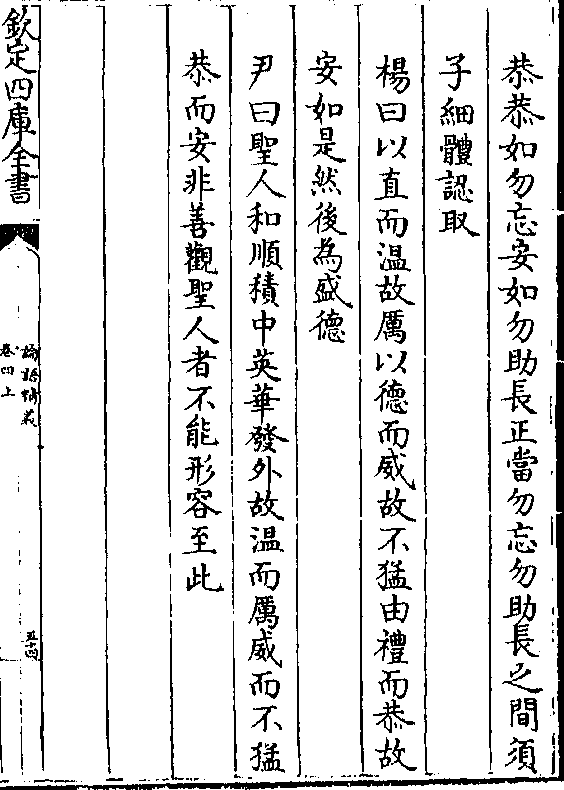 恭恭如勿忘安如勿助長正當勿忘勿助長之間須
子細體認取
楊曰以直而温故厲以德而威故不猛由禮而恭故
安如是然後為盛德
尹曰聖人和順積中英華發外故温而厲威而不猛
恭而安非善觀聖人者不能形容至此
欽定四庫全書
論語精義
卷四上
五十四